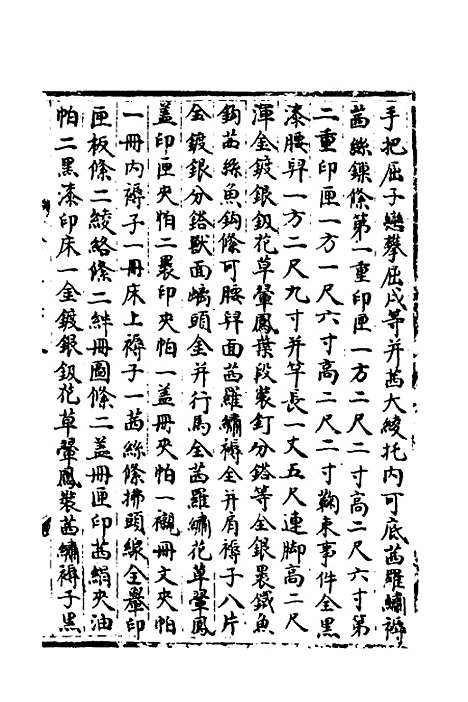 手把屈子戀攀屈戍等并茜大綾托内可底茜羅繡褥
茜絲鏁絛第一重印匣一方二尺二寸高二尺六寸第
二重印匣一方一尺六寸高二尺二寸鞠末事件全黑
漆腰舁一方二尺九寸并竿長一丈五尺連脚高二尺
渾金鍍銀釵花草翬鳳葉段裝釘分錔等全銀褁鐵魚
鈎茜絲魚鈎絛可腰舁面茜羅繡褥全并肩褥子八片
金鍍銀分錔獸面螭頭全并行馬全茜羅繡花草翬鳳
盖印匣夹帕二褁印夹帕一盖冊夹帕一襯冊文夹帕
一冊内褥子一冊床上褥子一茜絲絛拂頭線全轝印
匣板絛二綾絡絛二絆冊圖絛二盖冊匣印茜絹夹油
帕二黑漆印床一金鍍銀釵花草翬鳳裝茜繡褥子黑